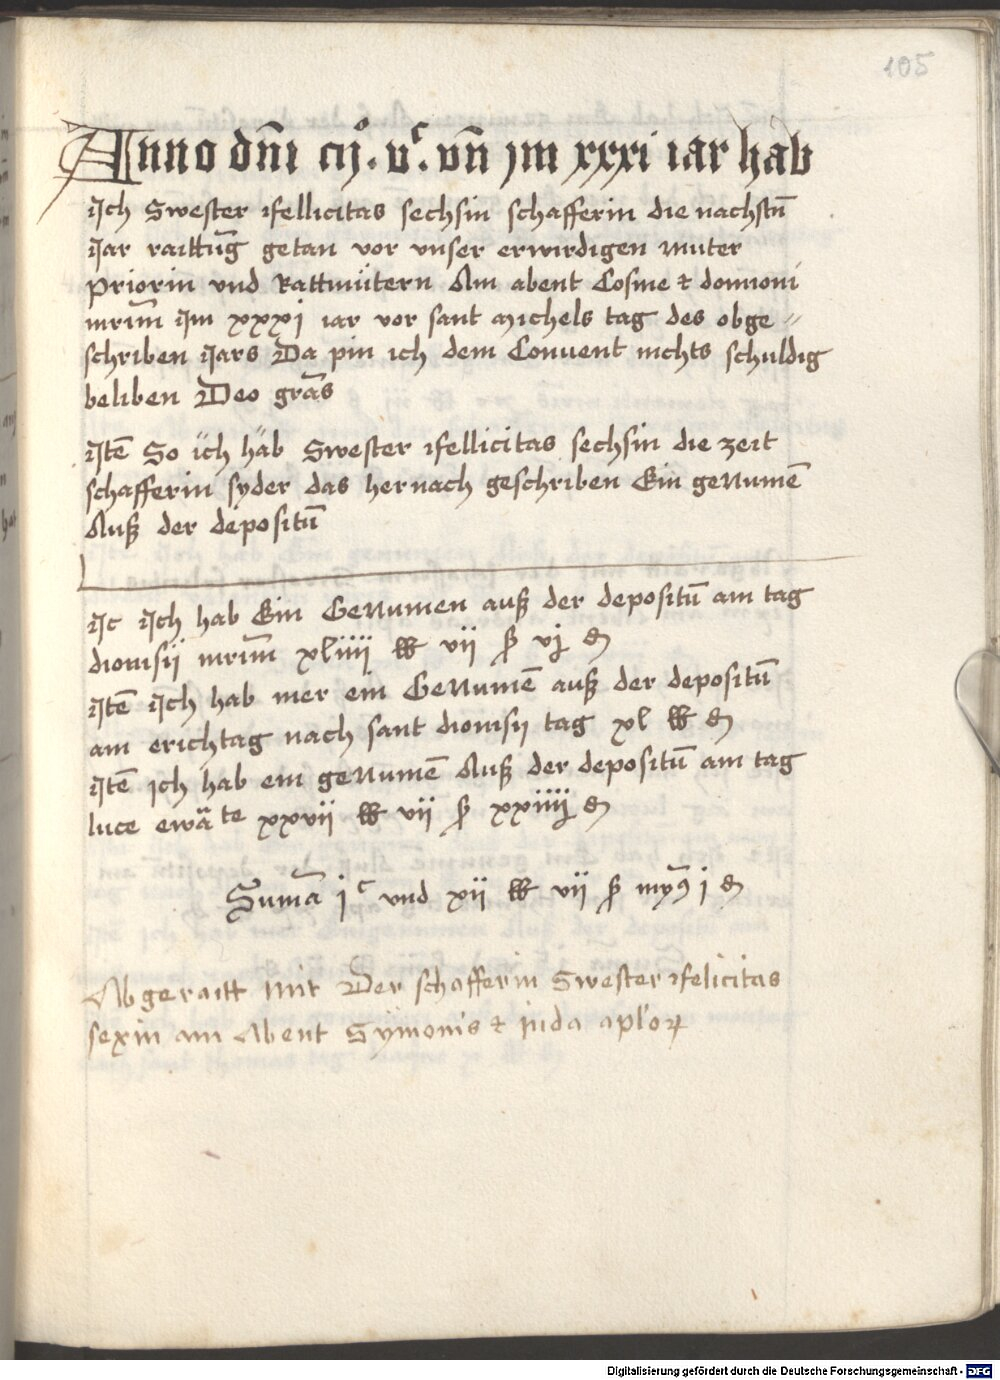 105
Anno dn̄i m̊. vᶜ. vn̄ jm xxxi iar hab
Jch Swester ffellicitas sechsin schafferin die nachstn̄
Jar raittūg getan vor vnser erwirdigen muter
priorin vnd Rattmütern Am abent Cosme et domioni
mrīm Jm xxxj iar vor sant Michels tag des obge〃
schriben Jars Da pin ich dem Convent nichts schuldig
beliben Deo grās
Jtē So ich hab Swester ffellicitas sechsin die zeit
schafferin syder das hernach geschriben Ein genumē
Auß der depositū
Jt Jch hab Ein Genumen auß der depositū am tag
dionisii mrīm xliiii ℔ vii ß vj ₰
Jtē Jch hab mer ein Genumē auß der depositū
am erichtag nach sant dionisii tag xl ℔ ₰
Jtē ich hab ein genumē Auß der depositū am tag
luce ewāte xxvii ℔ vii ß xxiiij ₰
Sum̄a jᶜ vnd xii ℔ vii ß j ₰
Abgeraitt mit Der schafferin Swester ffelicitas
sexin am Abent Symonis et iuda aploꝝ
Digitalisierung gefördert durch die Deutsche Forschungsgemeinschaft - DFG